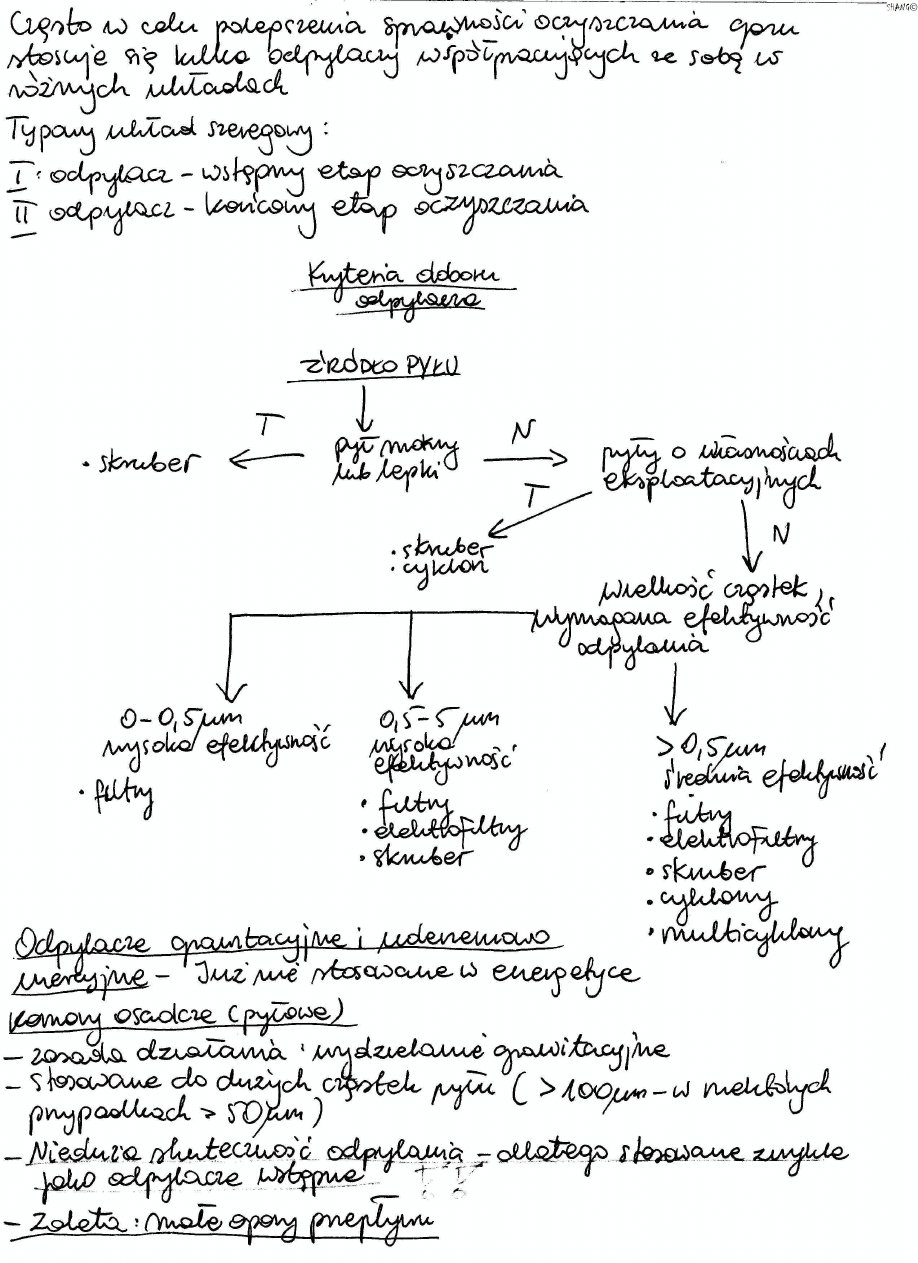 SHANG©
Często w celu polepszenia sprawności oczyszczania gazu
stosuje się kilka odpylaczy współpracujących ze sobą w
różnych układach
Typowy układ szeregowy:
I odpylacz – wstępny etap oczyszczania
II odpylacz – końcowy etap oczyszczania
Kryteria doboru
odpylacza
ŹRÓDŁO PYŁU
T
N
• skruber
pył mokry
lub lepki
pyły o własnościach
eksploatacyjnych
T
N
• skruber
• cyklon
wielkość cząstek,
wymagana efektywność
odpylania
0–0,5 μm
wysoka efektywność
• filtry
0,5–5 μm
wysoka
efektywność
• filtry
• elektrofiltry
• skruber
>0,5 μm
średnia efektywność
• filtry
• elektrofiltry
• skruber
• cyklony
• multicyklony
Odpylacze grawitacyjne i uderzeniowo
inercyjne – Już nie stosowane w energetyce
Komory osadcze (pyłowe)
– zasada działania: wydzielanie grawitacyjne
– Stosowane do dużych cząstek pyłu (>100μm – w niektórych
przypadkach > 50μm)
– Nieduża skuteczność odpylania – dlatego stosowane zwykle
jako odpylacze wstępne
– Zaleta: małe opory przepływu